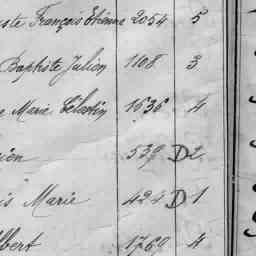 ste François Etienne 2054 5
Baptiste Julien 1168 3
e Marie Célestin 1636 4
ien 539 D 2
is Marie 424 D 1
lbert 1760 4